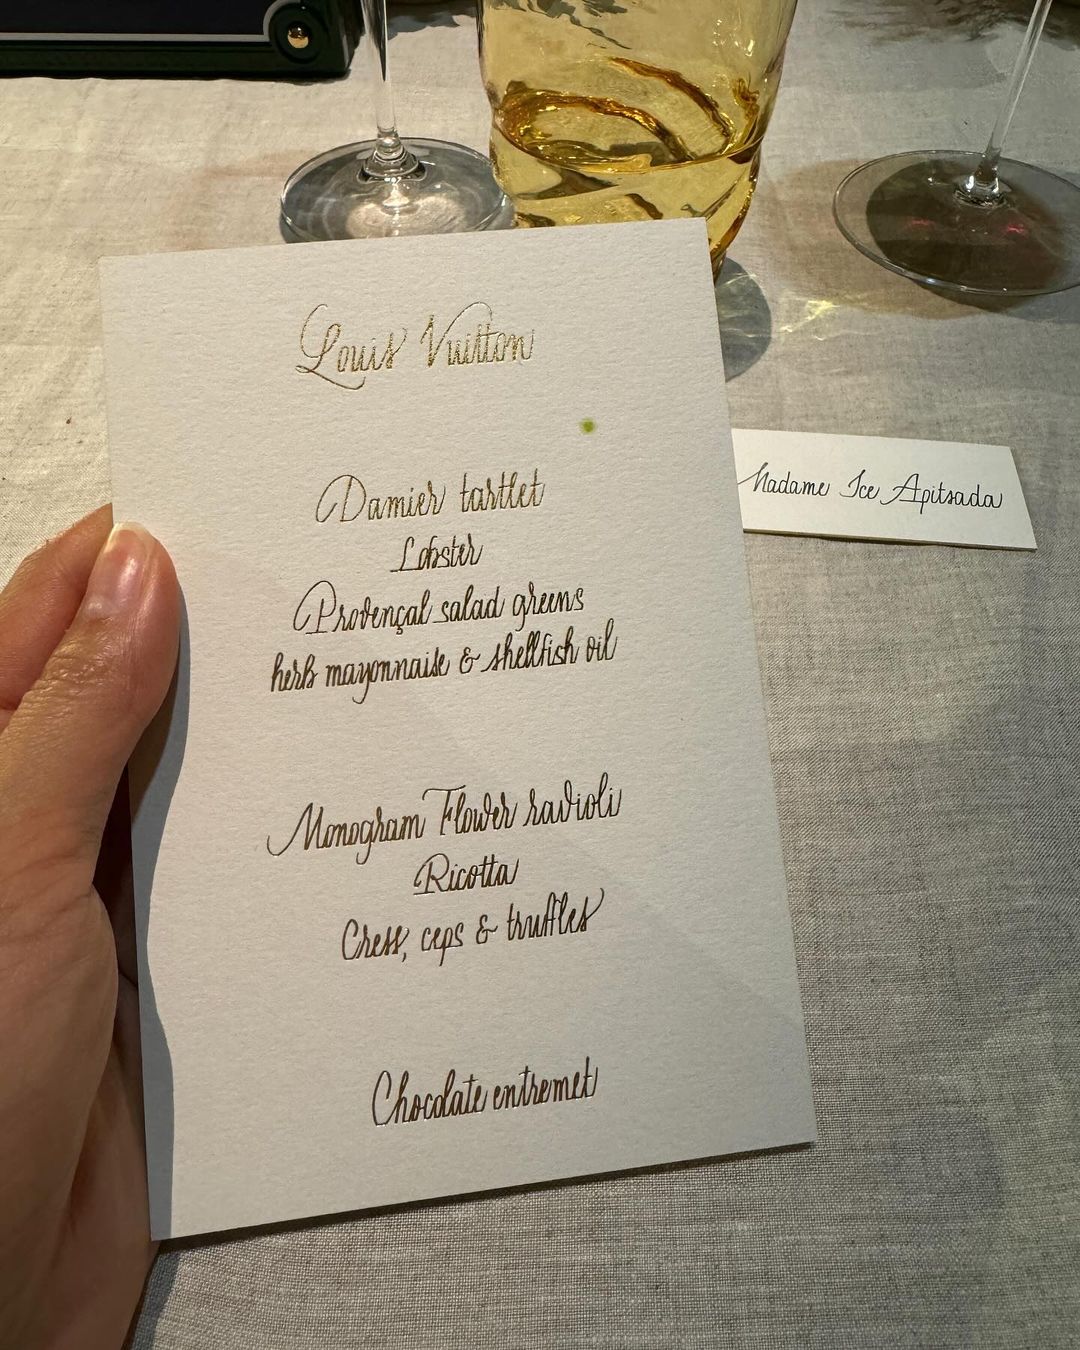 Louis Vuitton
Damier tartlet
Lobster
Provençal salad greens
herb mayonnaise & shellfish oil
Monogram Flower ravioli
Ricotta
Cress, ceps & truffles
Chocolate entremet
Madame Ice Apitsada